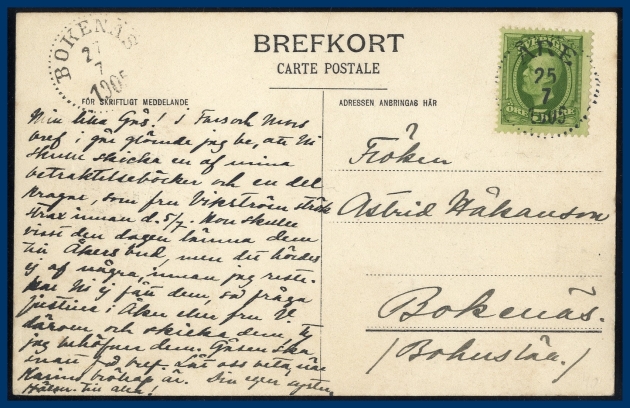 BOKENÄS
27
7
1905
BREFKORT
CARTE POSTALE
FÖR SKRIFTLIGT MEDDELANDE
ADRESSEN ANBRINGAS HÄR
SVERIGE
25
7
1905
FEM ÖRE
Min lilla Gås! I Fars och Mors
bref i går glömde jag be, att Ni
skulle skicka en af mina
betraktelseböcker och en del
kragar, som fru Vikström strök
strax innan d. 5/7. Hon skulle
visst den dagen lämna dem
till Åkers bud, men det hördes
ej af några, innan jag reste.
Har Ni ej fått dem, så fråga
Justina i Åken eller fru V.
därom, och skicka dem, ty
jag behöfver dem. Gåsen ska
snart få bref. Låt oss veta, när
Karins bröllop är. Din egen syster
Hälsn. till alla!
Fröken
Astrid Håkanson
Bokenäs.
(Bohuslän.)